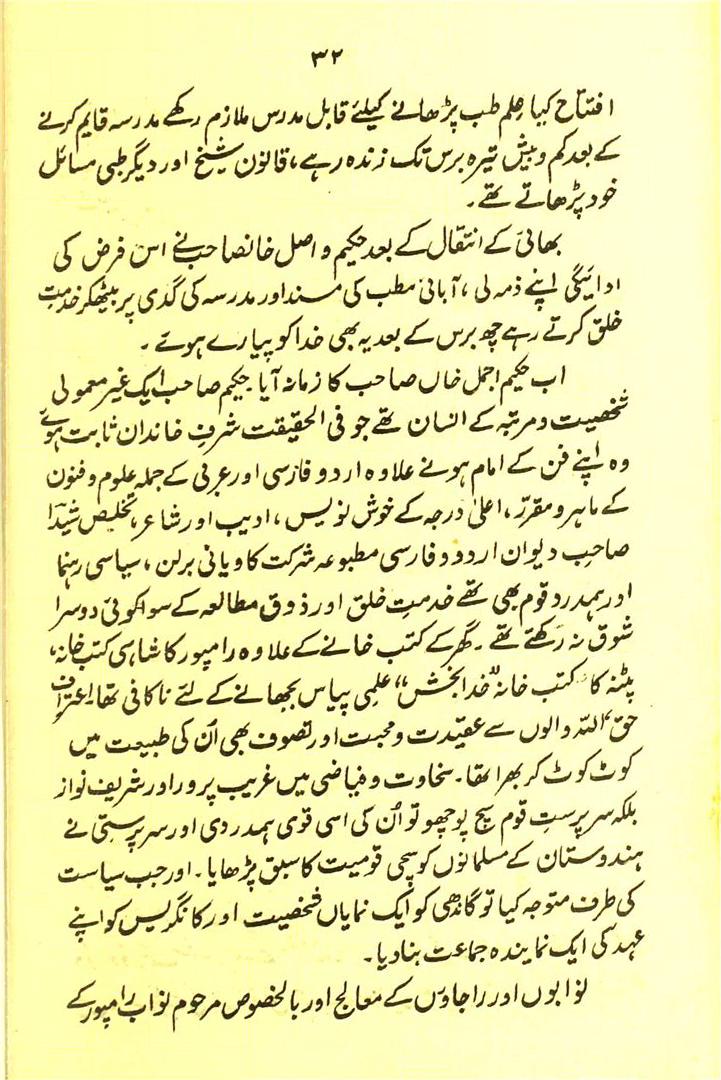 ۳۲
افتتاح کیا علم طب پڑھانے کیلئے قابل مدرس ملازم رکھے مدرسہ قایم کرنے
کے بعد کم و بیش تیرہ برس تک زندہ رہے، قانون شیخ اور دیگر طبی مسائل
خود پڑھاتے تھے۔
بھائی کے انتقال کے بعد حکیم واصل خانصاحب نے اس فرض کی
ادائیگی اپنے ذمہ لی، آبائی مطب کی مسند اور مدرسہ کی گدی پر بیٹھکر خدمت
خلق کرتے رہے چھ برس کے بعد یہ بھی خدا کو پیارے ہوئے۔
اب حکیم اجمل خاں صاحب کا زمانہ آیا۔ حکیم صاحب ایک غیر معمولی
شخصیت و مرتبہ کے انسان تھے جو فی الحقیقت شرفِ خاندان ثابت ہوئے
وہ اپنے فن کے امام ہونے علاوہ اردو فارسی اور عربی کے جملہ علوم و فنون
کے ماہر و مقرر، اعلیٰ درجہ کے خوش نویس، ادیب اور شاعر، تخلیص شیدا
صاحب دیوان اردو و فارسی مطبوعہ شرکت کاویانی برلن، سیاسی رہنما
اور ہمدرد قوم بھی تھے خدمتِ خلق اور ذوق مطالعہ کے سوا کوئی دوسرا
شوق نہ رکھتے تھے۔ گھر کے کتب خانے کے علاوہ رامپور کا شاہی کتب خانہ،
پٹنہ کا کتب خانہ "خدا بخش" علمی پیاس بجھانے کے لئے ناکافی تھا۔ اعتراف
حق، اللہ والوں سے عقیدت و محبت اور تصوف بھی اُن کی طبیعت میں
کوٹ کوٹ کر بھرا تھا۔ سخاوت و فیاضی میں غریب پرور اور شریف نواز
بلکہ سرپرستِ قوم سچ پوچھو تو اُن کی اسی قوی ہمدردی اور سرپرستی نے
ہندوستان کے مسلمانوں کو سچی قومیت کا سبق پڑھایا۔ اور جب سیاست
کی طرف متوجہ کیا تو گاندھی کو ایک نمایاں شخصیت اور کانگریس کو اپنے
عہد کی ایک نمایندہ جماعت بنا دیا۔
نوابوں اور راجاؤں کے معالج اور بالخصوص مرحوم نواب رامپور کے